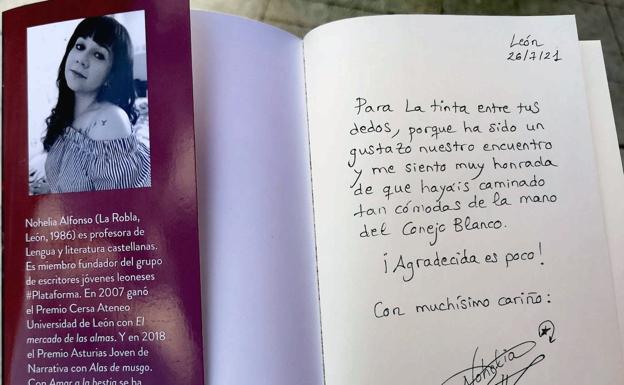 Nohelia Alfonso (La Robla,
León, 1986) es profesora de
Lengua y literatura castellanas.
Es miembro fundador del grupo
de escritores jóvenes leoneses
#Plataforma. En 2007 ganó
el Premio Cersa Ateneo
Universidad de León con El
mercado de las almas. Y en 2018
el Premio Asturias Joven de
Narrativa con Alas de musgo.
Con Amar a la bestia se ha
León
26/7/21
Para La tinta entre tus
dedos, porque ha sido un
gustazo nuestro encuentro
y me siento muy honrada
de que hayáis caminado
tan cómodas de la mano
del Conejo Blanco.
¡Agradecida es poco!
Con muchísimo cariño:
Nohelia